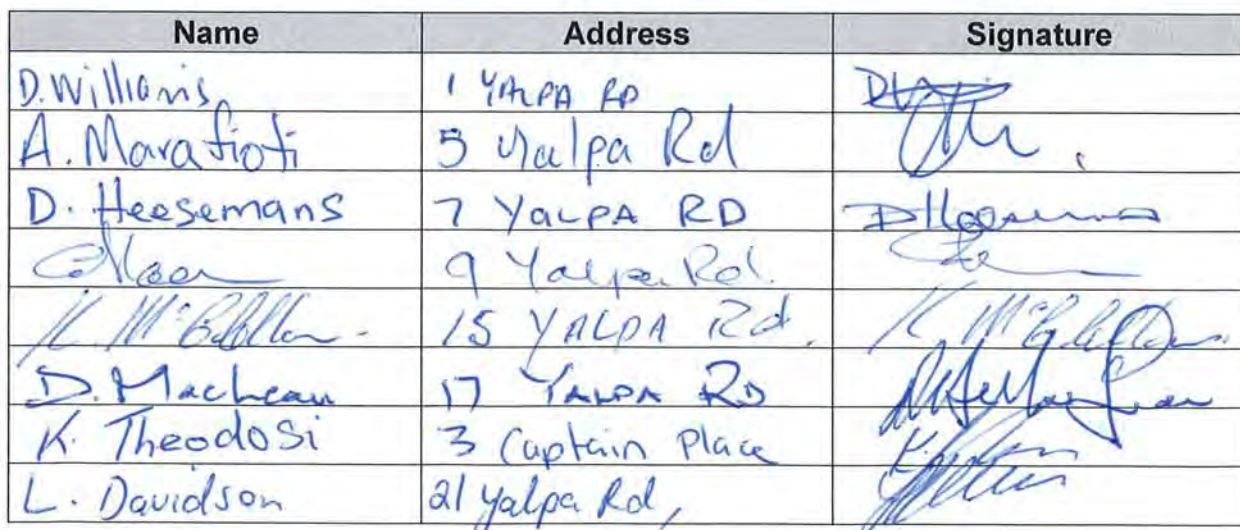 Name Address Signature
D. Williams 1 YALPA RD
A. Marafioti 5 Yalpa Rd
D. Heesemans 7 YALPA RD DHeesemans
9 Yalpa Rd.
K. 15 YALPA Rd. K.
D. MacLean 17 YALPA RD
K. Theodosi 3 Captain Place
L. Davidson 21 Yalpa Rd,